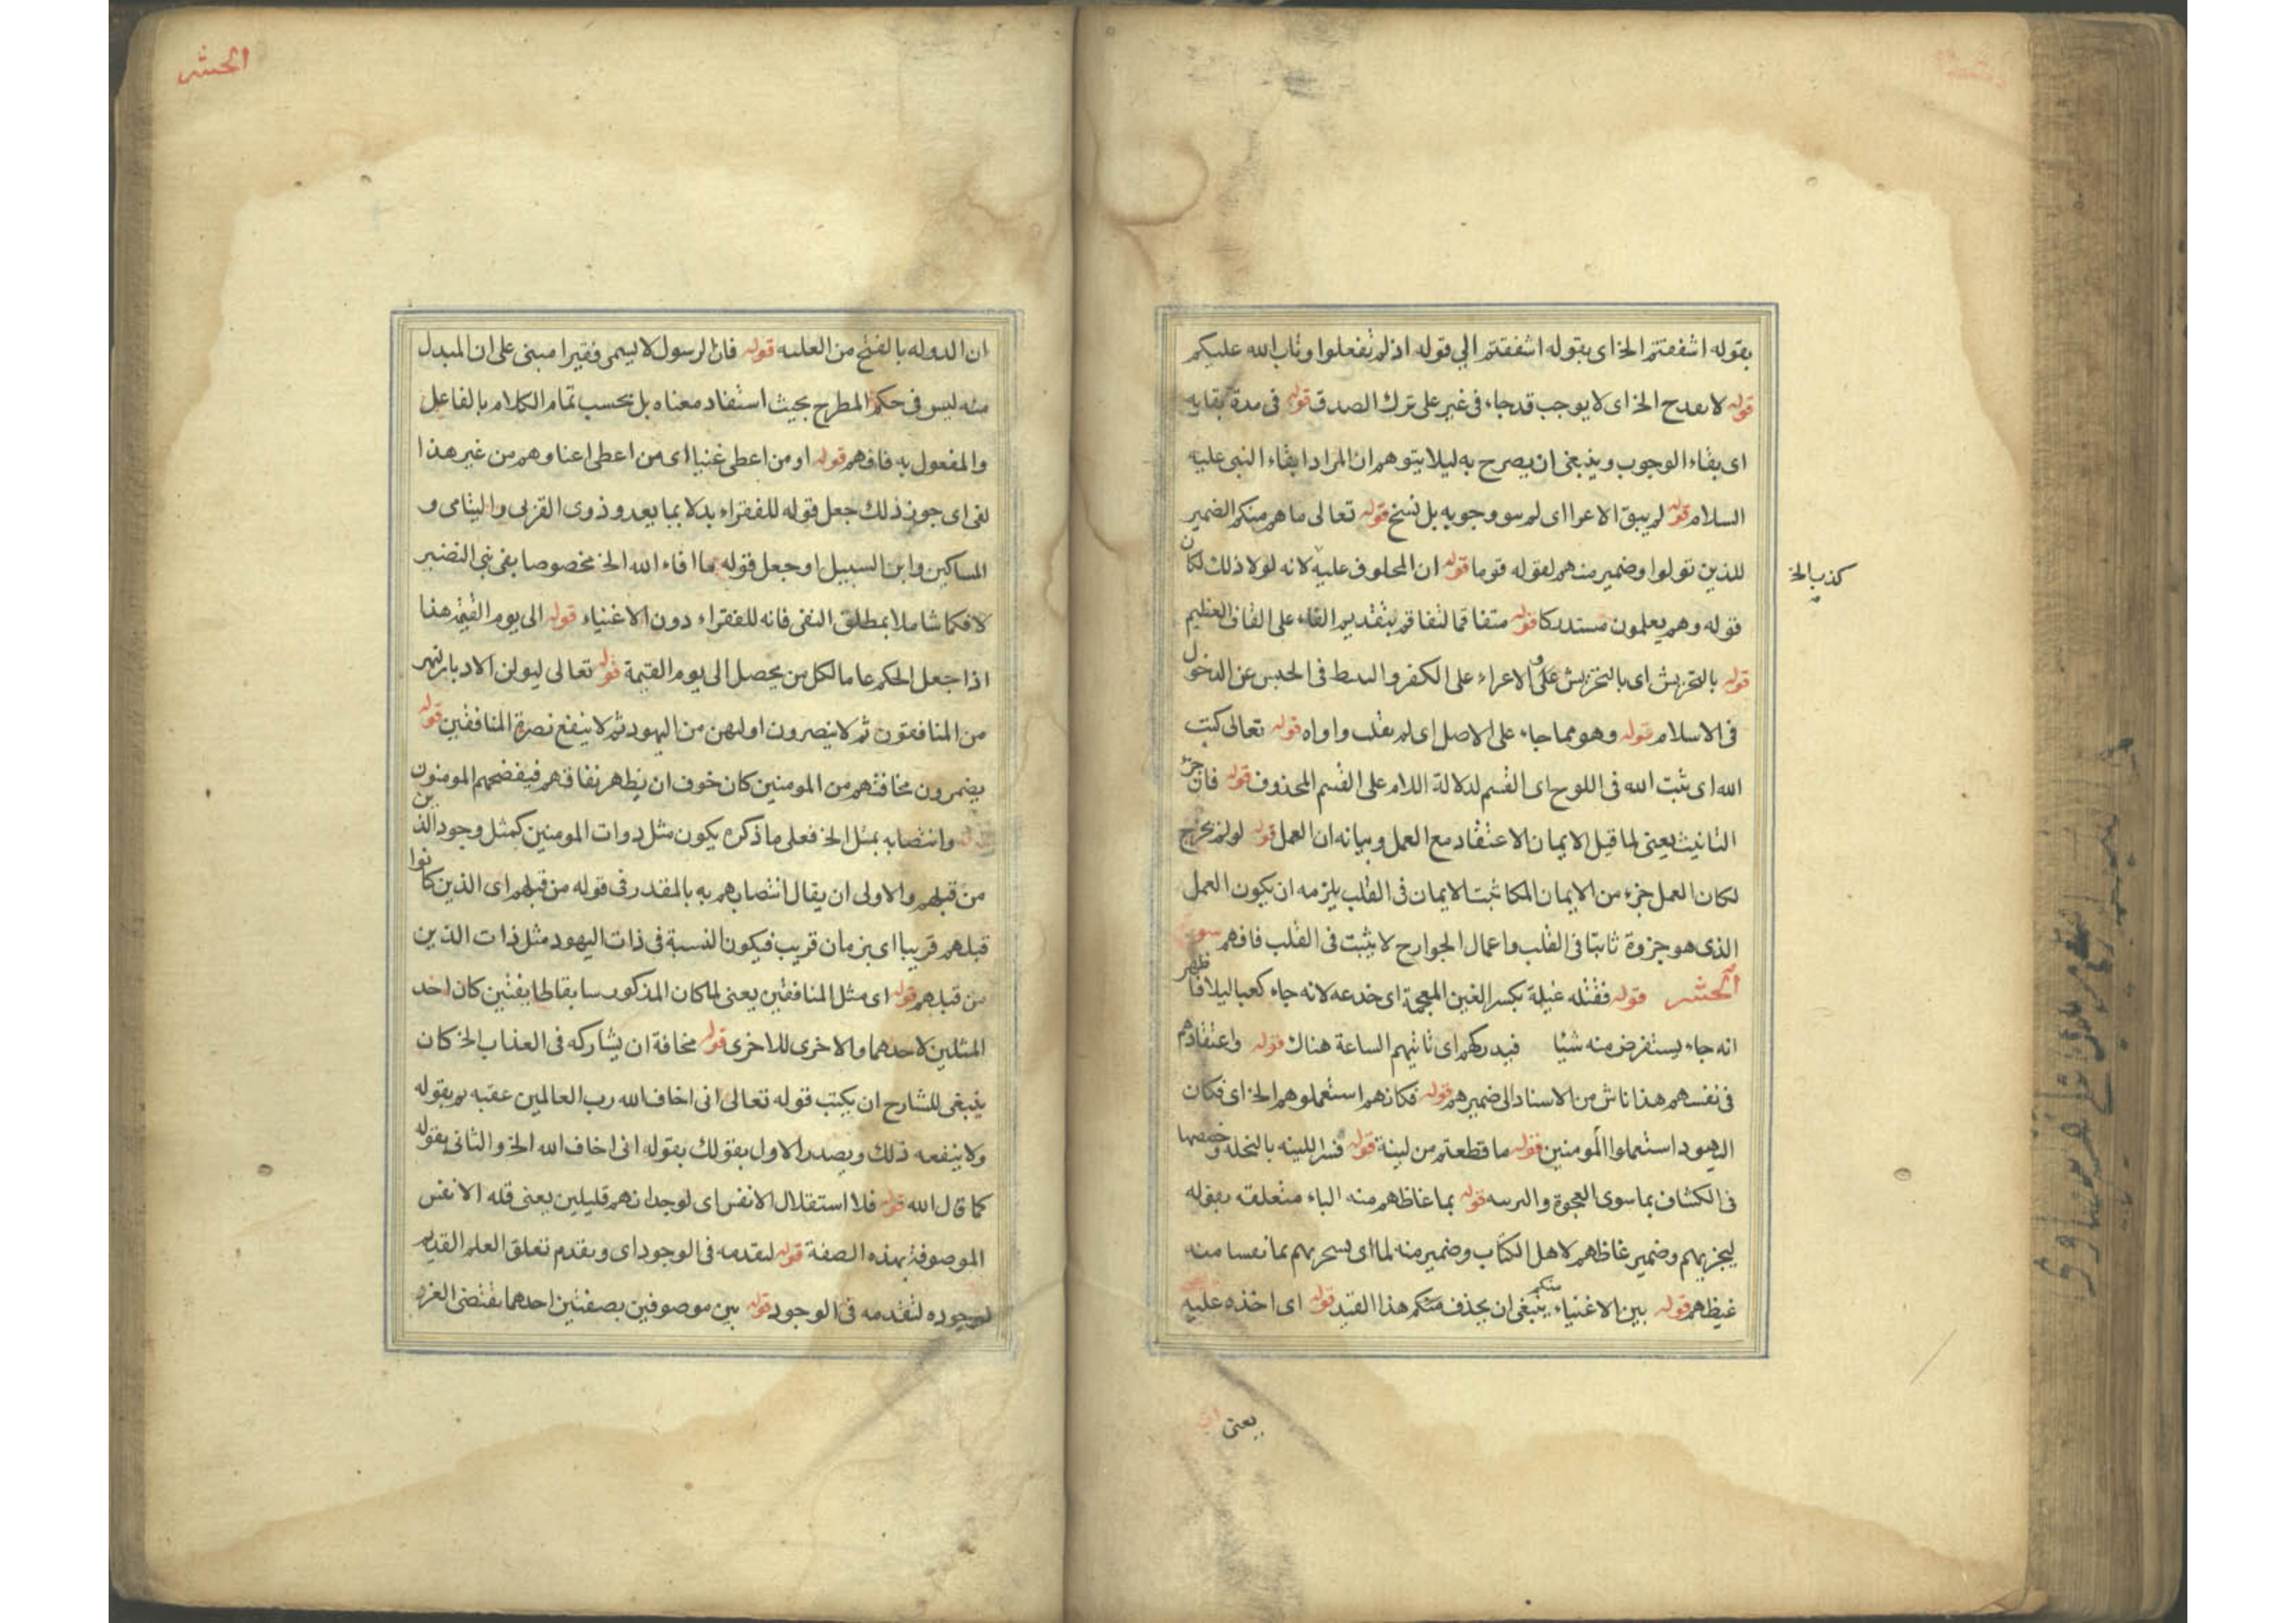 بقوله اشفقتم الخ اى بقوله اشفقتم الى قوله اذ لم تفعلوا وتاب الله عليكم
قوله لا يقدح الخ اى لا يوجب قدحا، فى غير على ترك الصدق قوله فى مدة بقايه
اى بقاء الوجوب وينبغى ان يصرح به ليلا يتوهم ان المراد ابقاء النبى عليه
السلام قوله لم يبق الاعرا اى لم وجوبه بل نسخ قوله تعالى ما هم منكم الضمير
للذين تولوا وضمير منهم لقوله قوما قوله ان المحلوف عليه لانه لولا ذلك لكان
كذب الخ
قوله وهم يعلمون مستدركا قوله متفاقما لتفاقم بتقديم الفاء على القاف العظيم
قوله بالتحريش اى بالتحريش على و الاعراء على الكفر و فى الحبس عن الدخول
فى الاسلام قوله وهو مما جاء على الاصل اى لم يقلب واواه قوله تعالى كتب
الله اى ثبت الله فى اللوح اى القسم لدلالة اللام على القسم المحذوف قوله فان جزء
الثانيث يعنى لما قيل الايمان الاعتقاد مع العمل وبيانه ان العمل قوله لو لم يخرج
لكان العمل جزء من الايمان المكا ثبت الايمان فى القلب يلزمه ان يكون العمل
الذى هو جزوة ثابتا فى القلب واعمال الجوارح لا يثبت فى القلب فافهم سورة
الحشر قوله فقتله غيلة بكسر الغين المعجمة اى خدعه لانه جاء كعبا ليلا فاظهر
انه جاء يستقرض منه شيئا فيدركهم اى ثانيهم الساعة هناك قوله واعتقادهم
فى نفسهم هذا ناش من الاسناد الى ضميرهم قوله فكانهم استعملوهم الخ اى فكان
اليهود استعملوا المومنين قوله ما قطعتم من لينة قوله فسر اللينه بالنخلة وخصصها
فى الكشاف بما سوى العجوة والبرنيه قوله بما غاظهم منه الباء متعلقه بقوله
ليجزيهم وضمير غاظهم لاهل الكتاب وضمير منه لما اى منه
غيظهم قوله بين الاغنياء منكم ينبغى ان يحذف منكم هذا القيد قوله اى اخذه عليه
يعنى ان
الحشر
ان الدوله بالفتح من العلبه قوله فان الرسول لا يسمى فقيرا مبنى على ان المبدل
منه ليس فى حكم المطرح بحيث استفاد معناه بل بحسب تمام الكلام بالفاعل
والمفعول به فافهم قوله او من اعطى غنيا اى من اعطى اعنا وهم من غير هذا
لفى اى جوز ذلك جعل قوله للفقراء بدلا بما بعد و ذوى القربى واليتامى و
المساكين وابن السبيل او جعل قوله ما افاء الله الخ مخصوصا بفى بنى النضير
لا فكما شاملا بمطلق الفى فانه للفقراء دون الاغنياء قوله الى يوم القيمة هذا
اذا جعل الحكم عاما لكل من يحصل الى يوم القيمة قوله تعالى ليولن الادبار
من المنافقون ثم لا ينصرون اولهن من اليهود ثم لا ينفع نصرة المنافقين قوله
يضمرون مخافتهم من المومنين كان خوف ان يظهر نفاقهم فيفضحهم المومنون
وانتصابه بمثل الخ فعلى ما ذكره يكون مثل دوات المومنين كمثل وجود الذين
من قبلهم والاولى ان يقال انتصابهم به بالمقدر فى قوله من قبلهم اى الذين كانوا
قبلهم قريبا اى بزمان قريب فيكون النسبة فى ذات اليهود مثل ذات الذين
من قبلهم قوله اى مثل المنافقين يعنى لما كان المذكور سابقا طايفتين كان احد
المثلين لاحدهما والاخرى للاخرى قوله مخافة ان يشاركه فى العذاب الخ كان
ينبغى للشارح ان يكتب قوله تعالى انى اخاف الله رب العالمين عقبه ثم بقوله
ولا ينفعه ذلك ويصدر الاول بقولك بقوله انى اخاف الله الخ والثانى بقوله
كما قال الله قوله فلا استقلال الانفس اى لوجدانهم قليلين يعنى قله الانفس
الموصوفة بهذه الصفة قوله لتقدمه فى الوجود اى وبقدم تعلق العلم القديم
لموجوده لتقدمه فى الوجود قوله بين موصوفين بصفتين احدهما يقتضى العزه